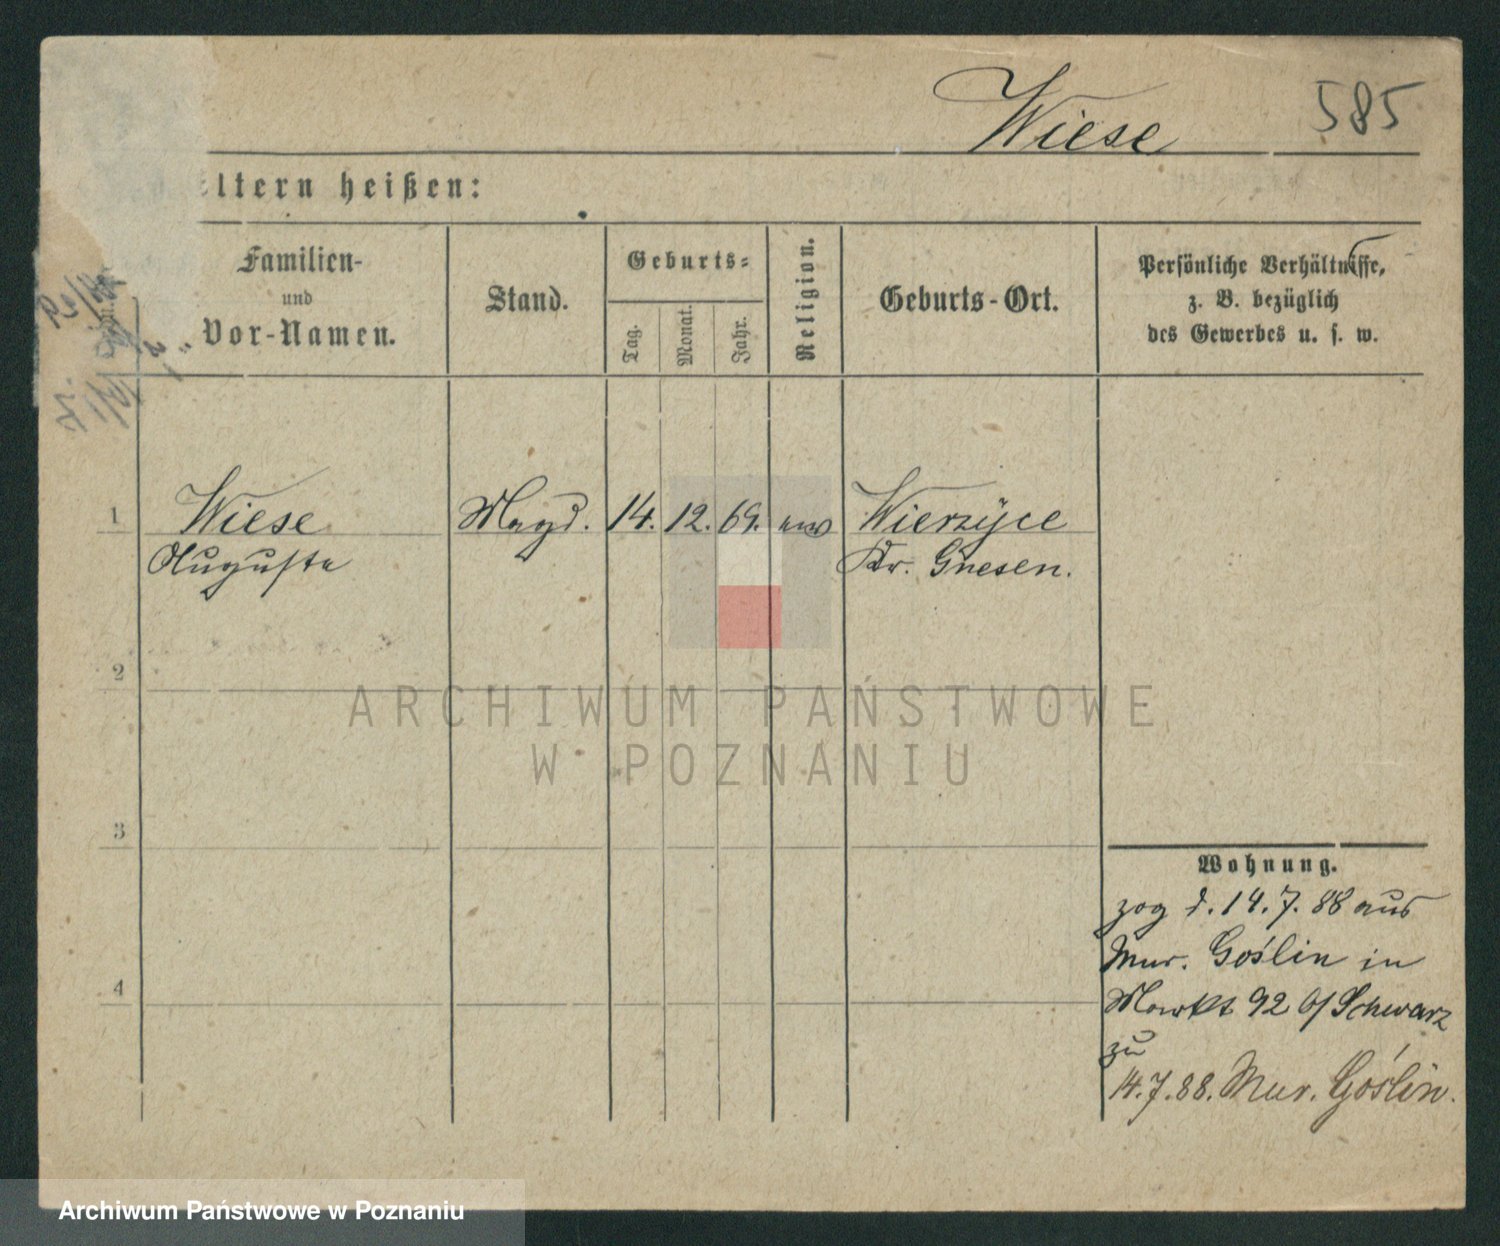 Wiese 585
ltern heißen:
Familien-
und
Vor-Namen.
Stand.
Geburts-
Tag.
Monat.
Jahr.
Religion.
Geburts-Ort.
Persönliche Verhältnisse,
z. B. bezüglich
des Gewerbes u. s. w.
1 Wiese Magd. 14. 12. 69. Wierzyce
Auguste Kr. Gnesen.
2
3
4
Wohnung.
zog d. 14. 7. 88 aus
Mur. Goślin in
Markt 92 b/ Schwarz
zu
14. 7. 88. Mur. Goślin.
ARCHIWUM PAŃSTWOWE
W POZNANIU
Archiwum Państwowe w Poznaniu